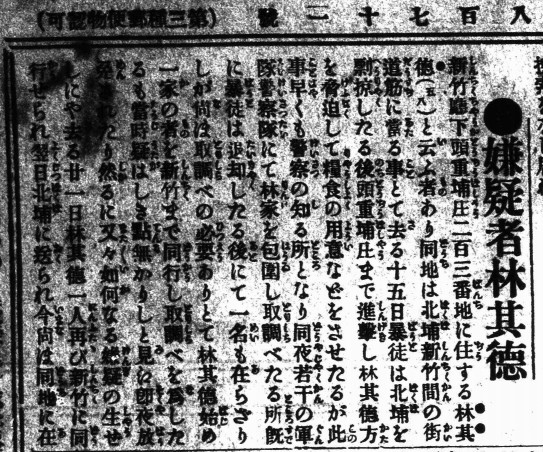 （可認物便郵種三第）
號二十七百八
●嫌疑者林其德
新竹廳下頭重埔庄二百三番地に住する林其
德（五八）と云ふ者あり同地は北埔新竹間の街
道筋に當る事とて去る十五日暴徒は北埔を
剽掠したる後頭重埔庄まで進擊し林其德方
を脅迫して糧食の用意などをさせたるが此
事早くも警察の知る所となり同夜若干の軍
隊警察隊にて林家を包圍し取調べたる所旣
に暴徒は退却したる後にて一名も在らざり
しが尙ほ取調べの必要ありとて林其德始め
一家の者を新竹まで同行し取調べを爲した
るも當時疑はしき點無かりしと見ゆ卽夜放
免されたり然るに又々如何なる嫌疑の生せ
しにや去る廿一日林其德一人再び新竹に同
行せられ翌日北埔に送られ今尙ほ同地に在